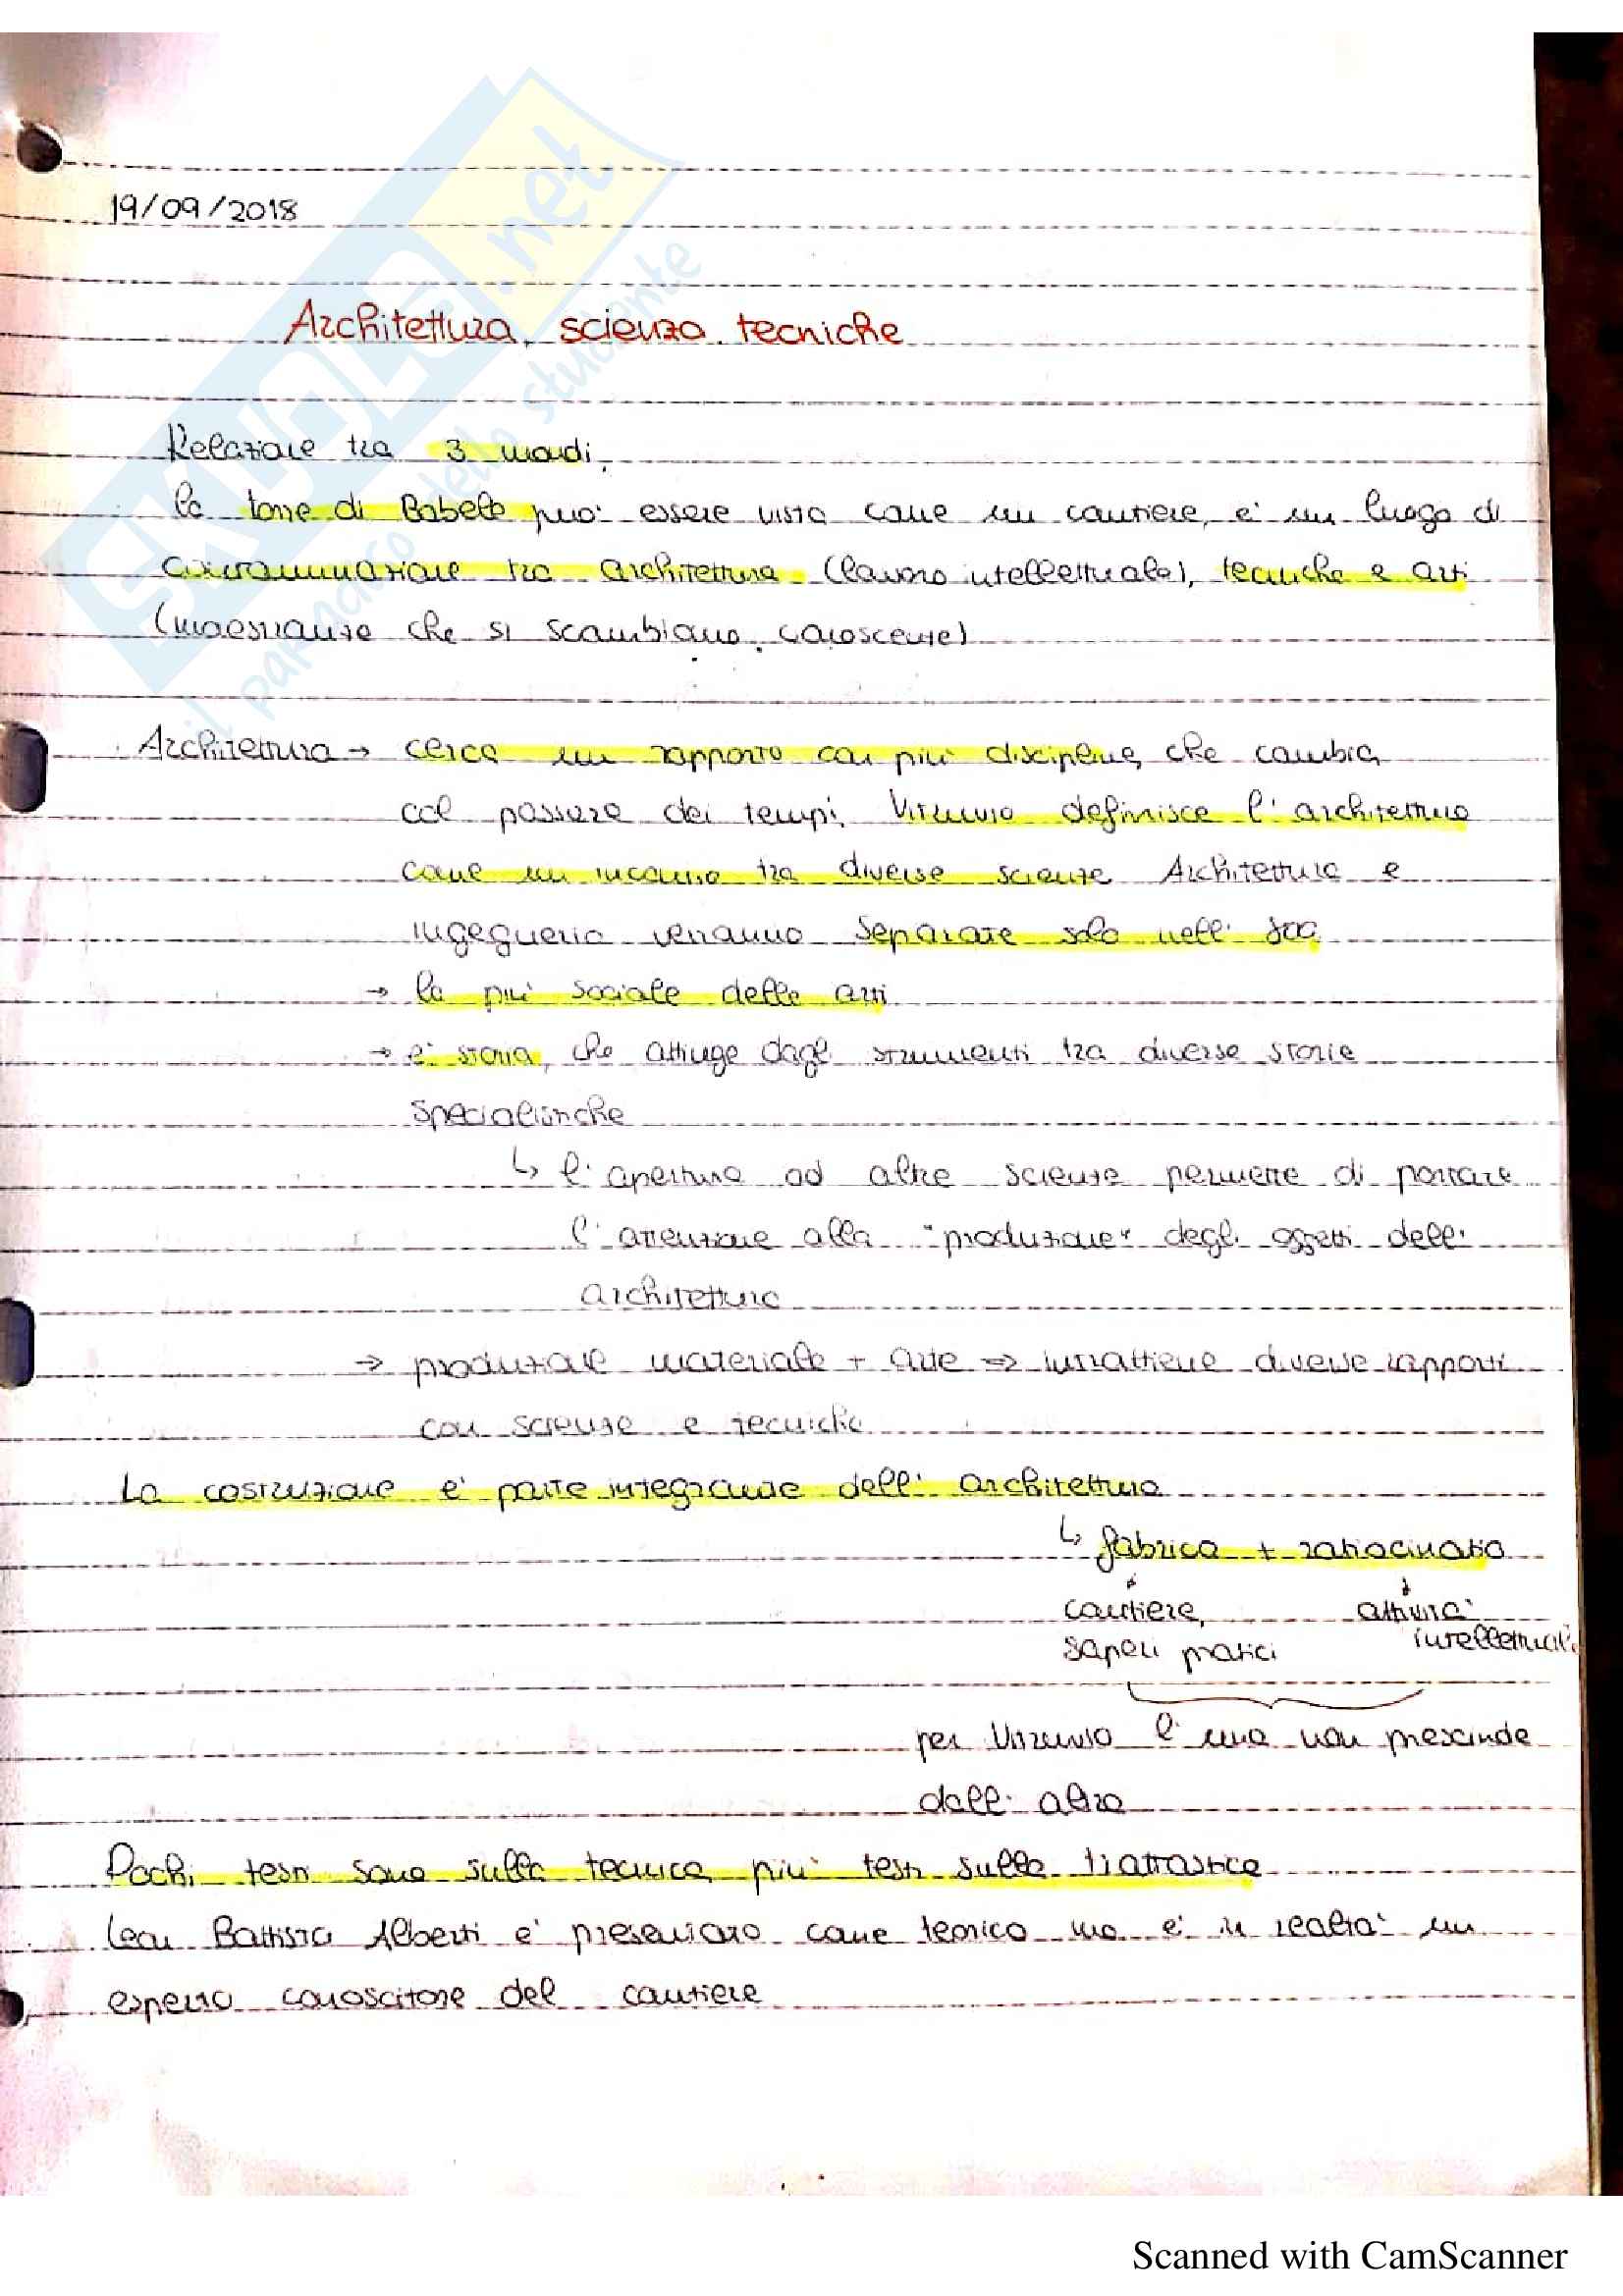 19/09/2018
Architettura, scienza tecniche
Relazione tra 3 mondi.
la torre di Babele può essere vista come un cantiere, è un luogo di
contaminazione tra architettura (lavoro intellettuale), tecniche e arti
(maestranze che si scambiano conoscenze)
Architettura → cerca un rapporto con più discipline, che cambia
col passare dei tempi. Vitruvio definisce l'architettura
come un incontro tra diverse scienze Architettura e
ingegneria verranno separate solo nell'
→ la più sociale delle arti
→ è storia, che attinge dagli strumenti tra diverse storie
specialistiche
↳ l'apertura ad altre scienze permette di portare
l'attenzione alla "produzione" degli oggetti dell'
architettura
→ produzione materiale + arte ⇒ intrattiene diversi rapporti
con scienze e tecniche
La costruzione è parte integrante dell'architettura
↳ fabrica + ratiocinatio
cantiere, attività
saperi pratici intellettuali
per Vitruvio l'una non prescinde
dall'altra
Pochi testi sono sulla tecnica, più testi sulla trattastica
Leon Battista Alberti è presentato come teorico ma è in realtà un
esperto conoscitore del cantiere
SKUOLA.net
il paradiso dello studente
Scanned with CamScanner